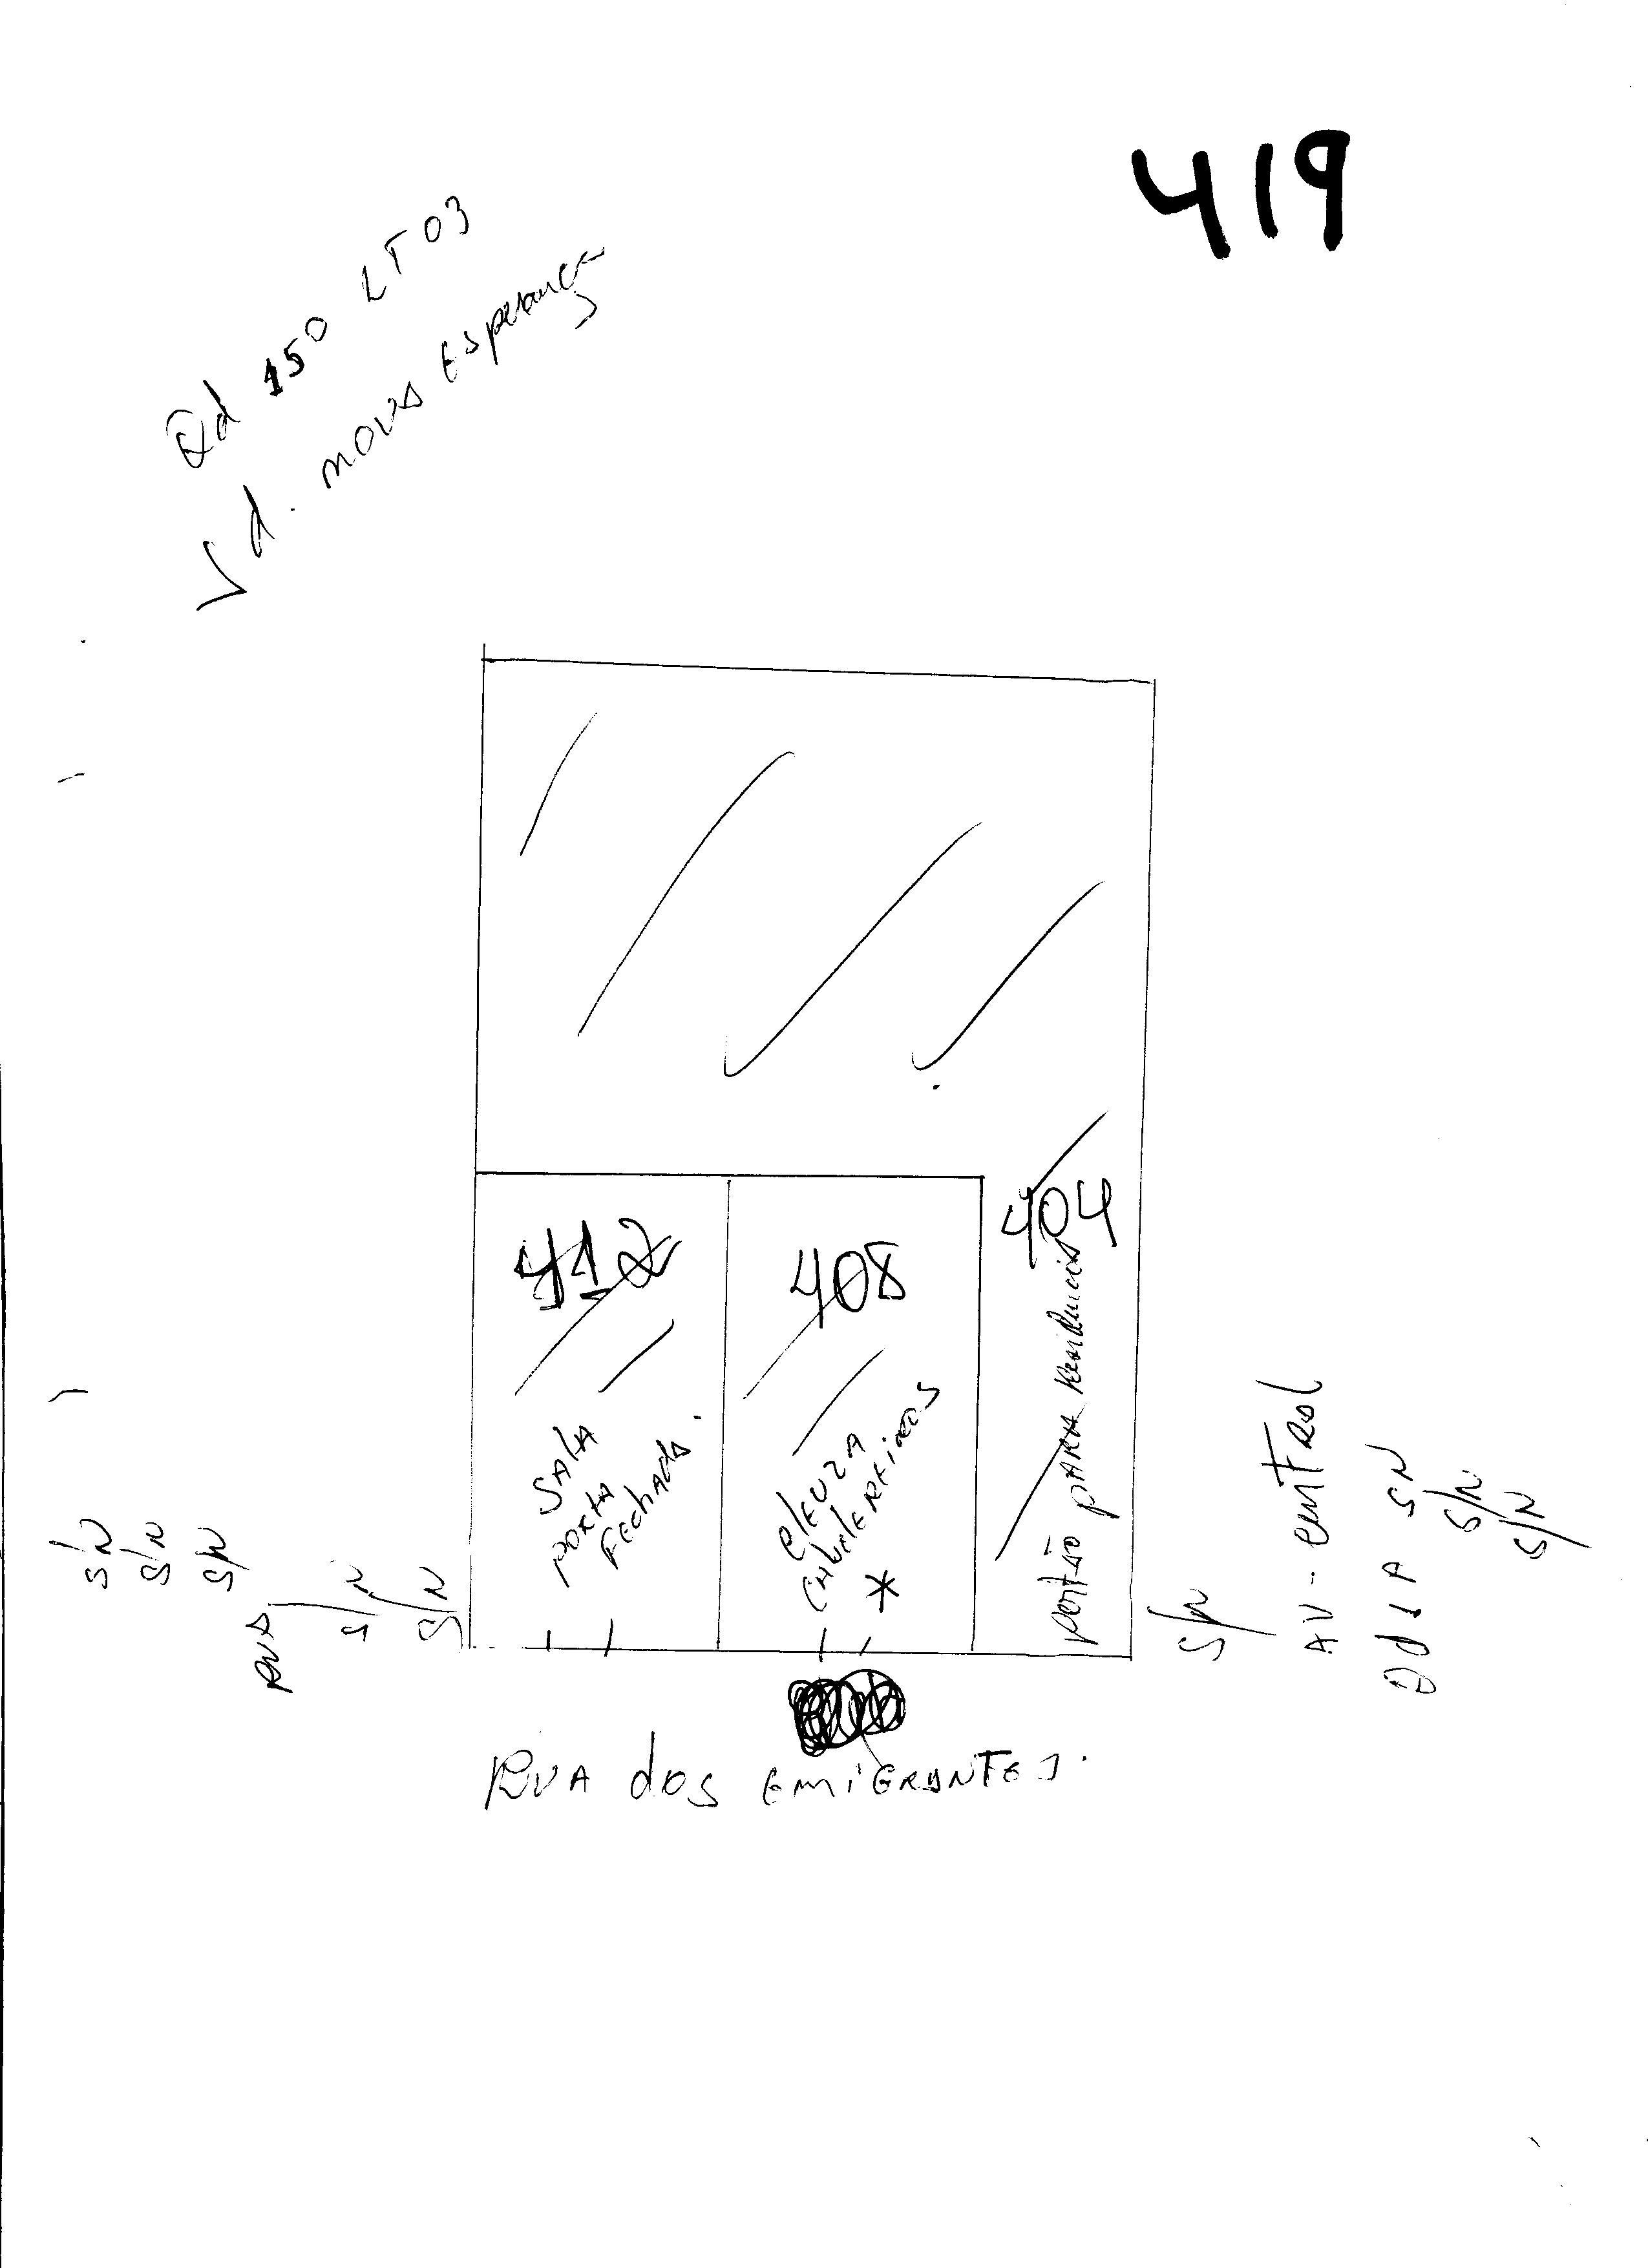 419
Qd 150 LT 03
Jd. nova Esperança
412
SAlA
PORTA
FEChAdA.
408
ClEUZA
CABELEREIROS
*
404
portão pARA Residencia
S/N
S/N
S/N
RUA
S/N
S/N
S/N
AV - CENTRAL
SN
S/N
S/N
RUA dos EMIGRANTES.